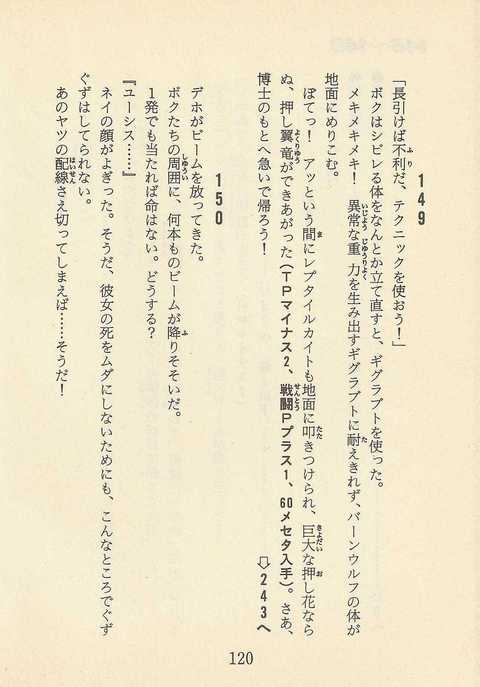 149
「長引けば不利だ、テクニックを使おう！」
ボクはシビレる体をなんとか立て直すと、ギグラブトを使った。
メキメキメキ！　異常な重力を生み出すギグラブトに耐えきれず、バーンウルフの体が
地面にめりこむ。
ぼてっ！　アッという間にレプタイルカイトも地面に叩きつけられ、巨大な押し花なら
ぬ、押し翼竜ができあがった（ＴＰマイナス２、戦闘Ｐプラス１、60メセタ入手）。さあ、
博士のもとへ急いで帰ろう！
⇨243へ
150
デホがビームを放ってきた。
ボクたちの周囲に、何本ものビームが降りそそいだ。
１発でも当たれば命はない。どうする？
『ユーシス……』
ネイの顔がよぎった。そうだ、彼女の死をムダにしないためにも、こんなところでぐず
ぐずはしてられない。
あのヤツの配線さえ切ってしまえば……そうだ！
120